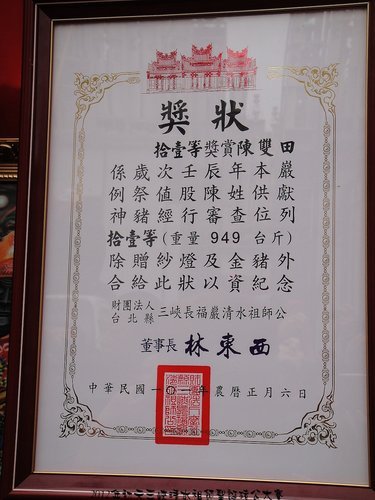 獎狀
拾壹等獎賞陳雙田
係歲次壬辰年本巖
例祭值股陳姓供獻
神豬經行審查位列
拾壹等(重量949台斤)
除贈紗燈及金豬外
合給此狀以資紀念
財團法人
台北縣
三峽長福巖清水祖師公
董事長 林東西
中華民國一〇一年農曆正月六日